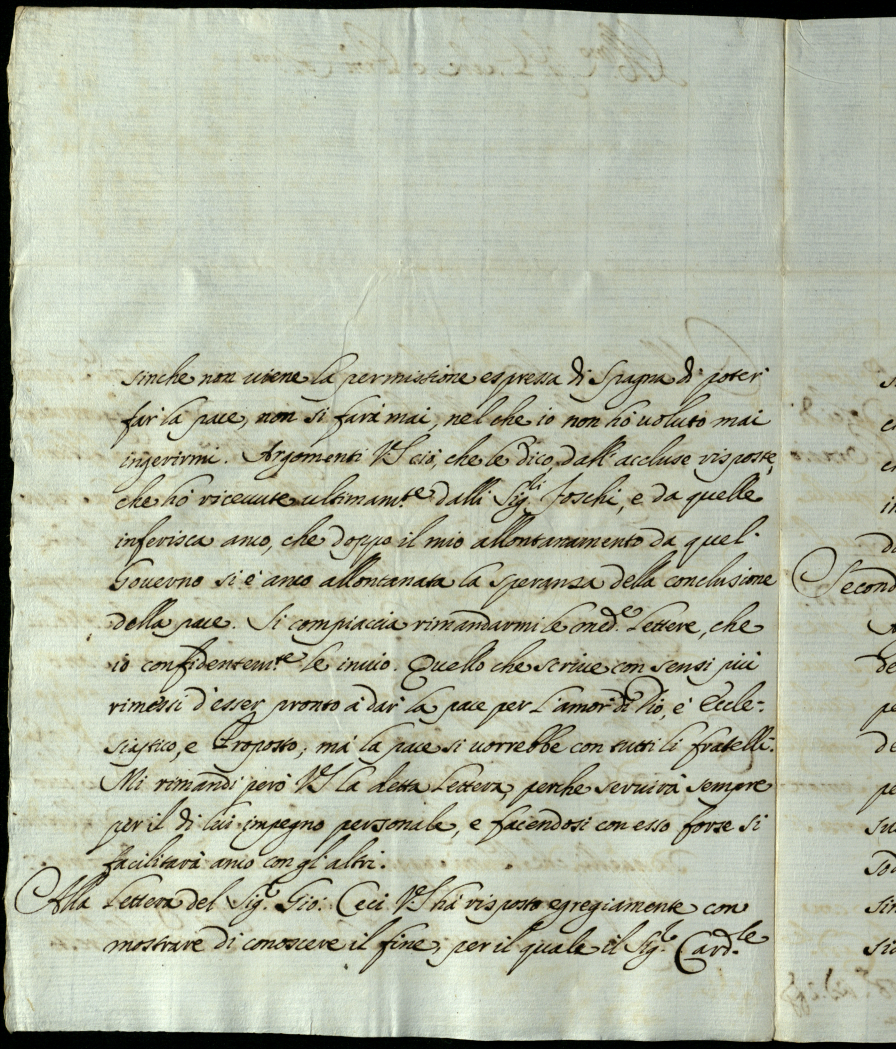 sinche non uiene la permissione espressa di Spagna di poter
far la pace, non si farà mai, nel che io non hò uoluto mai
ingerirmi. Argomenti VS ciò, che le dico, dall' accluse risposte,
che hò riceuute ultimam.te dalli Sig.li Foschi, e da quelle
inferisca anco, che doppo il mio allontanamento da quel
Gouerno si è anco allontanata la speranza della conclusione
della pace. Si compiaccia rimandarmi le med.e Lettere, che
io confidentem.te le inuio. Quello che scriue con sensi più
rimessi d'esser pronto à dar la pace per l'amor di Dio, è Eccle-
siastico, e Proposto; mà la pace si uorrebbe con tutti li fratelli.
Mi rimandi però VS la detta Lettera, perche seruirà sempre
per il di lui impegno personale, e facendosi con esso forse si
facilitarà anco con gl'altri.
Alla Lettera del Sig.r Gio: Ceci VS hà risposto egregiamente con
mostrare di conoscere il fine, per il quale il Sig.r Card.le
Second